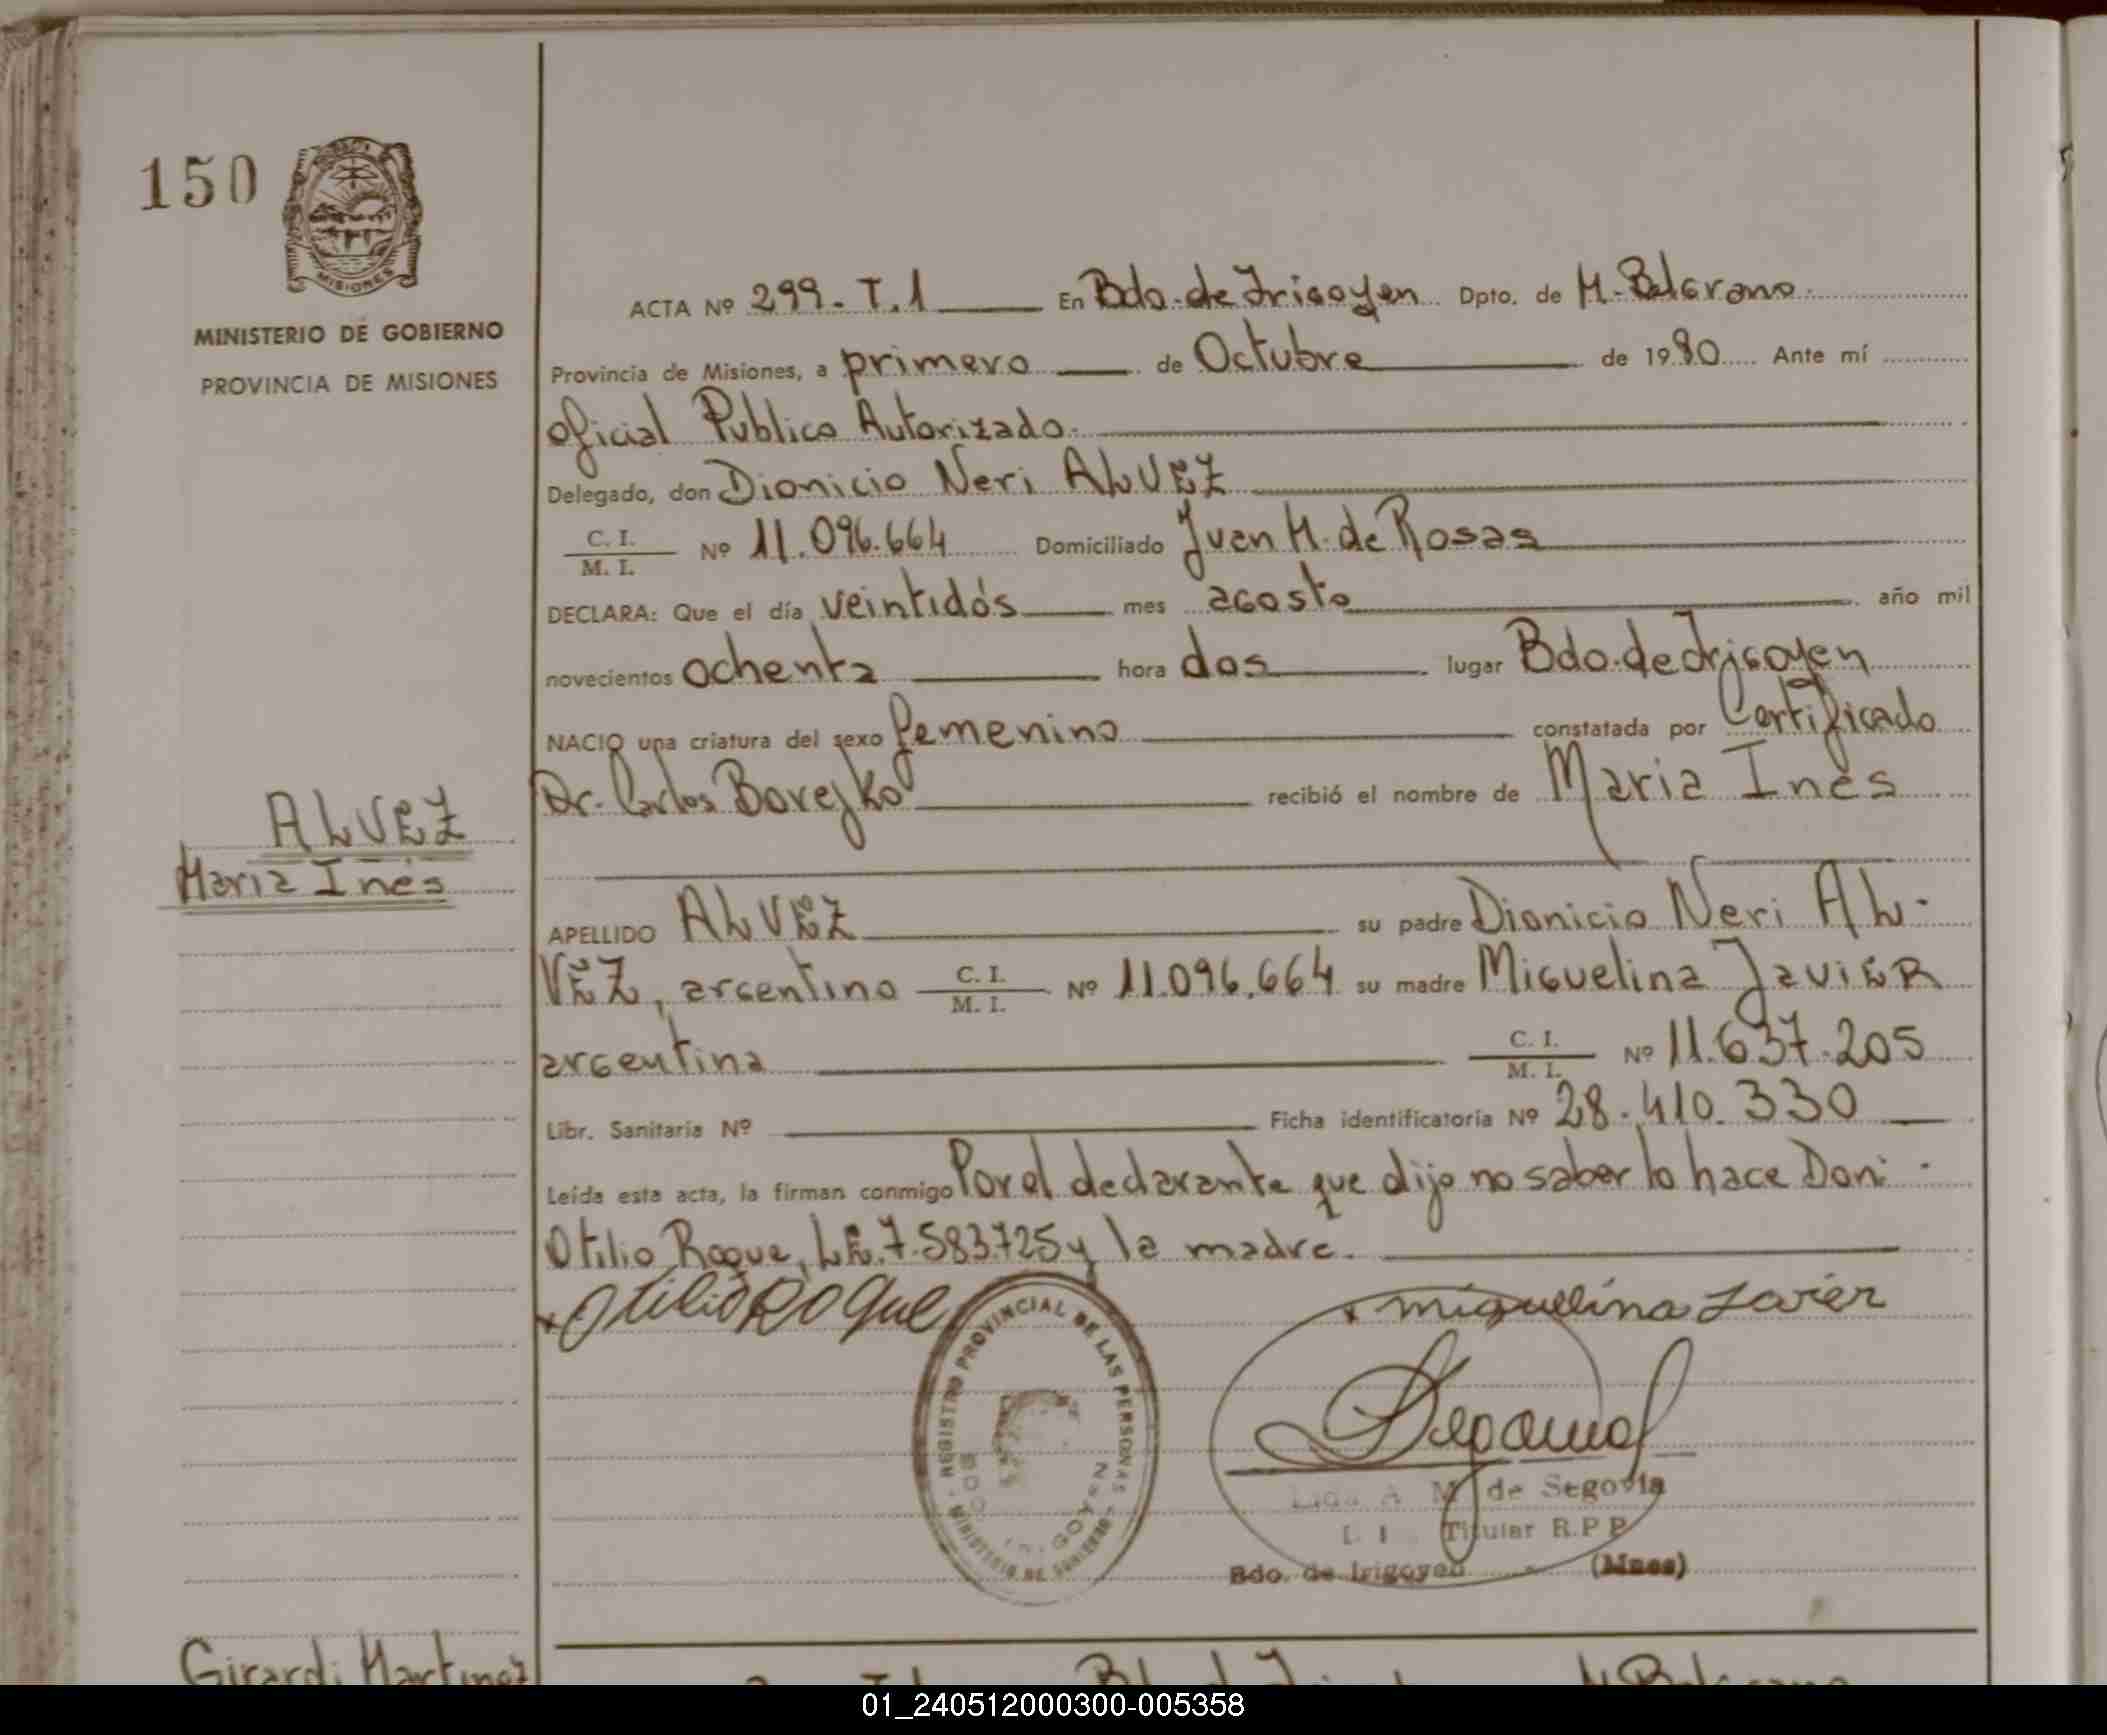 150
MISIONES
MINISTERIO DE GOBIERNO
PROVINCIA DE MISIONES
ALVEZ
Maria Inés
ACTA Nº 299. T.1 En Bdo. de Irigoyen Dpto. de M. Belgrano
Provincia de Misiones, a primero de Octubre de 1980 Ante mí
Oficial Publico Autorizado.
Delegado, don Dionicio Neri ALVEZ
C. I.
M. I. Nº 11.096.664 Domiciliado Juan M. de Rosas
DECLARA: Que el día veintidós mes agosto año mil
novecientos ochenta hora dos lugar Bdo. de Irigoyen
NACIO una criatura del sexo femenino constatada por Certificado
Dr. Carlos Borejko recibió el nombre de Maria Inés
APELLIDO ALVEZ su padre Dionicio Neri AL-
VEZ, argentino C. I.
M. I. Nº 11.096.664 su madre Miguelina JaviER
argentina C. I.
M. I. Nº 11.637.205
Libr. Sanitaria Nº Ficha identificatoria Nº 28.410.330
Leída esta acta, la firman conmigo Por el declarante que dijo no saber lo hace Don:
Otilio Roque, L.E. 7.583.725 y la madre.
Otilio Roque
miguelina Javier
REGISTRO PROVINCIAL DE LAS PERSONAS
MINISTERIO DE GOBIERNO
de Segovia
Titular R.P.P.
Bdo. de Irigoyen (Mnes)
Girardi Martinez
01_240512000300-005358